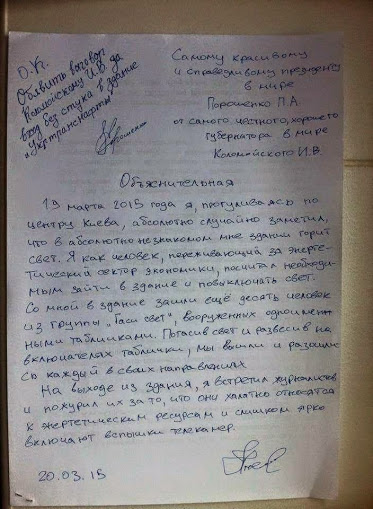 О.К.
Объявить выговор
Коломойскому И.В. за
вход без стука в здание
"Укртранснафты"
Самому красивому
и справедливому президенту
в мире
Порошенко П.А.
от самого честного, хорошего
губернатора в мире
Коломойского И.В.
Объяснительная
19 марта 2015 года я, прогуливаясь по
центру Киева, абсолютно случайно заметил,
что в абсолютно незнакомом мне здании горит
свет. Я как человек, переживающий за энерге-
тический сектор экономики, посчитал необходи-
мым зайти в здание и повыключать свет.
Со мной в здание зашли ещё десять человек
из группы "Гаси свет", вооруженных одноимен-
ными табличками. Потасив свет и развесив на
включателях таблички, мы вышли и разошли
сь каждый в своих направлениях
На выходе из здания, я встретил журналистов
и пожурил их за то, что они халатно относятся
к энергетическим ресурсам и слишком ярко
включают вспышки телекамер.
20.03.15